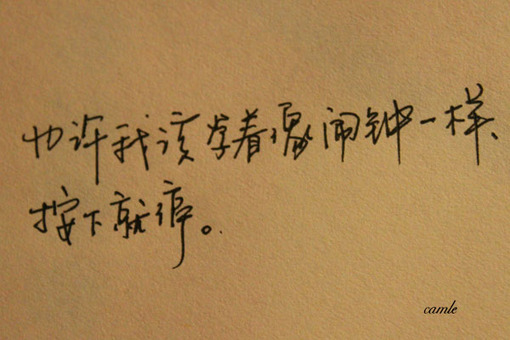 也许我该学着像闹钟一样、
按下就停。
camle